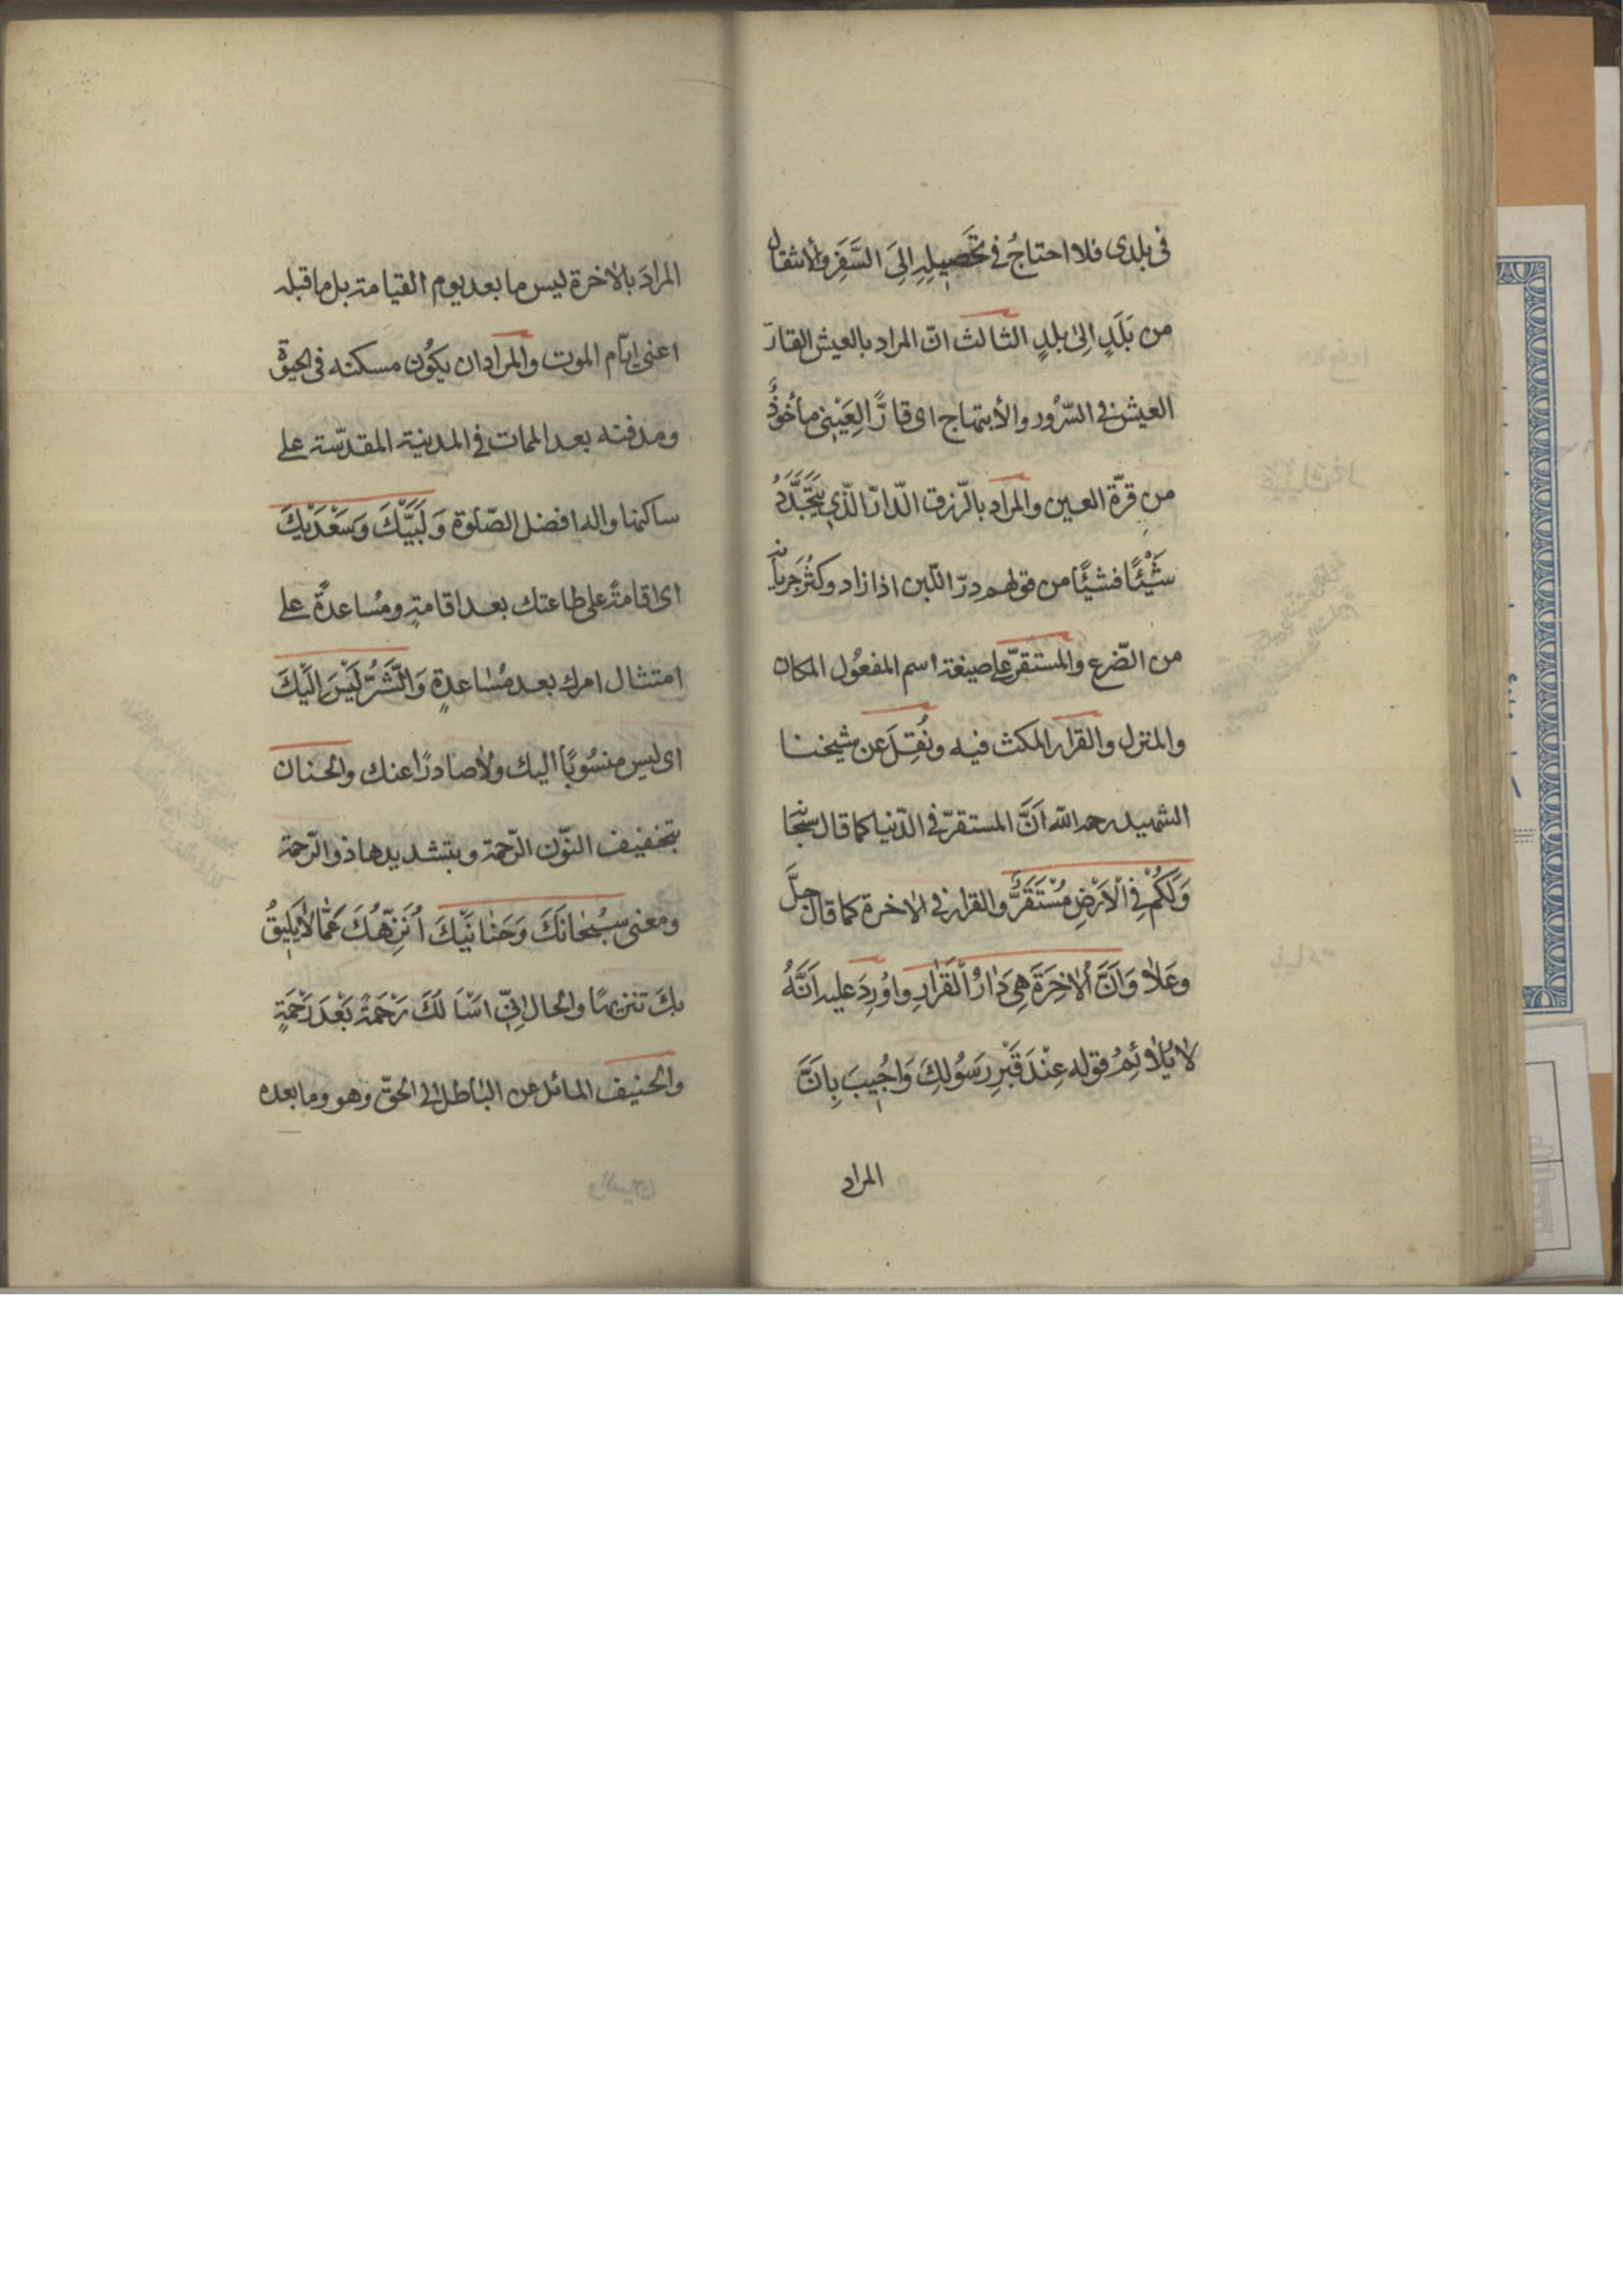 فى بلدى فلا احتاجُ فى تَحصِيلِهِ اِلىَ السَّفَرِ وَالأنتقال
من بَلَدٍ اِلىٰ بلدٍ الثالث انّ المراد بالعيش القارّ
العيش فى السّرُور والأبتهاج اى قارًّا لِعَيْنِى مأخُوذٌ
من قرّة العين والمراد بالرّزق الدّارّ الّذي يَتَجَدَّدُ
شَيْئًا فشيئًا من قولهم درّ اللّبن اذا زاد وكَثُرَ جَريانه
من الضّرع والمستقرّ على صيغة اسم المفعُول المكان
والمنزل والقرار المكث فيه ونُقِلَ عن شيخنا
الشهيد رحمه الله اَنَّ المستقرّ فى الدّنيا كما قال سبحانه
وَلَكُمْ فِى الْاَرْضِ مُسْتَقَرٌّ والقرار فى الاخرة كما قال جلَّ
وعَلا وَاَنَّ الْاٰخِرَةَ هِىَ دَارُ الْقَرَارِ واُورِدَ عليه اَنَّهُ
لا يُلاۤئِمُ قوله عِنْدَ قَبْرِ رَسُولِكَ وَاُجِيبَ بِاَنَّ
المراد
المرادَ بالاخرة ليس ما بعد يوم القيامة بل ما قبله
اعنى ايّام الموت والمراد ان يكُون مسكنه فى الحيوة
ومدفنه بعد الممات فى المدينة المقدّسة على
ساكنها واله افضل الصّلوة وَلَبَّيْكَ وَسَعْدَيْكَ
اى اقامةً على طاعتك بعد اقامةٍ ومُساعدةً على
امتثال امرك بعد مُساعدةٍ وَالشَّرُّ لَيْسَ اِلَيْكَ
اى ليس منسُوبًا اليك ولا صادرًا عنك والحنان
بتخفيف النّون الرّحمة وبتشديدها ذو الرّحمة
ومعنى سُبْحَانَكَ وَحَنَانَيْكَ اُنَزِّهُكَ عَمَّا لا يَلِيقُ
بك تنزيهًا والحال اِنّى اَسْاَلُكَ رَحْمَةً بَعْدَ رَحْمَةٍ
والحنيف المائل عن الباطل الى الحقّ وهو وما بعده